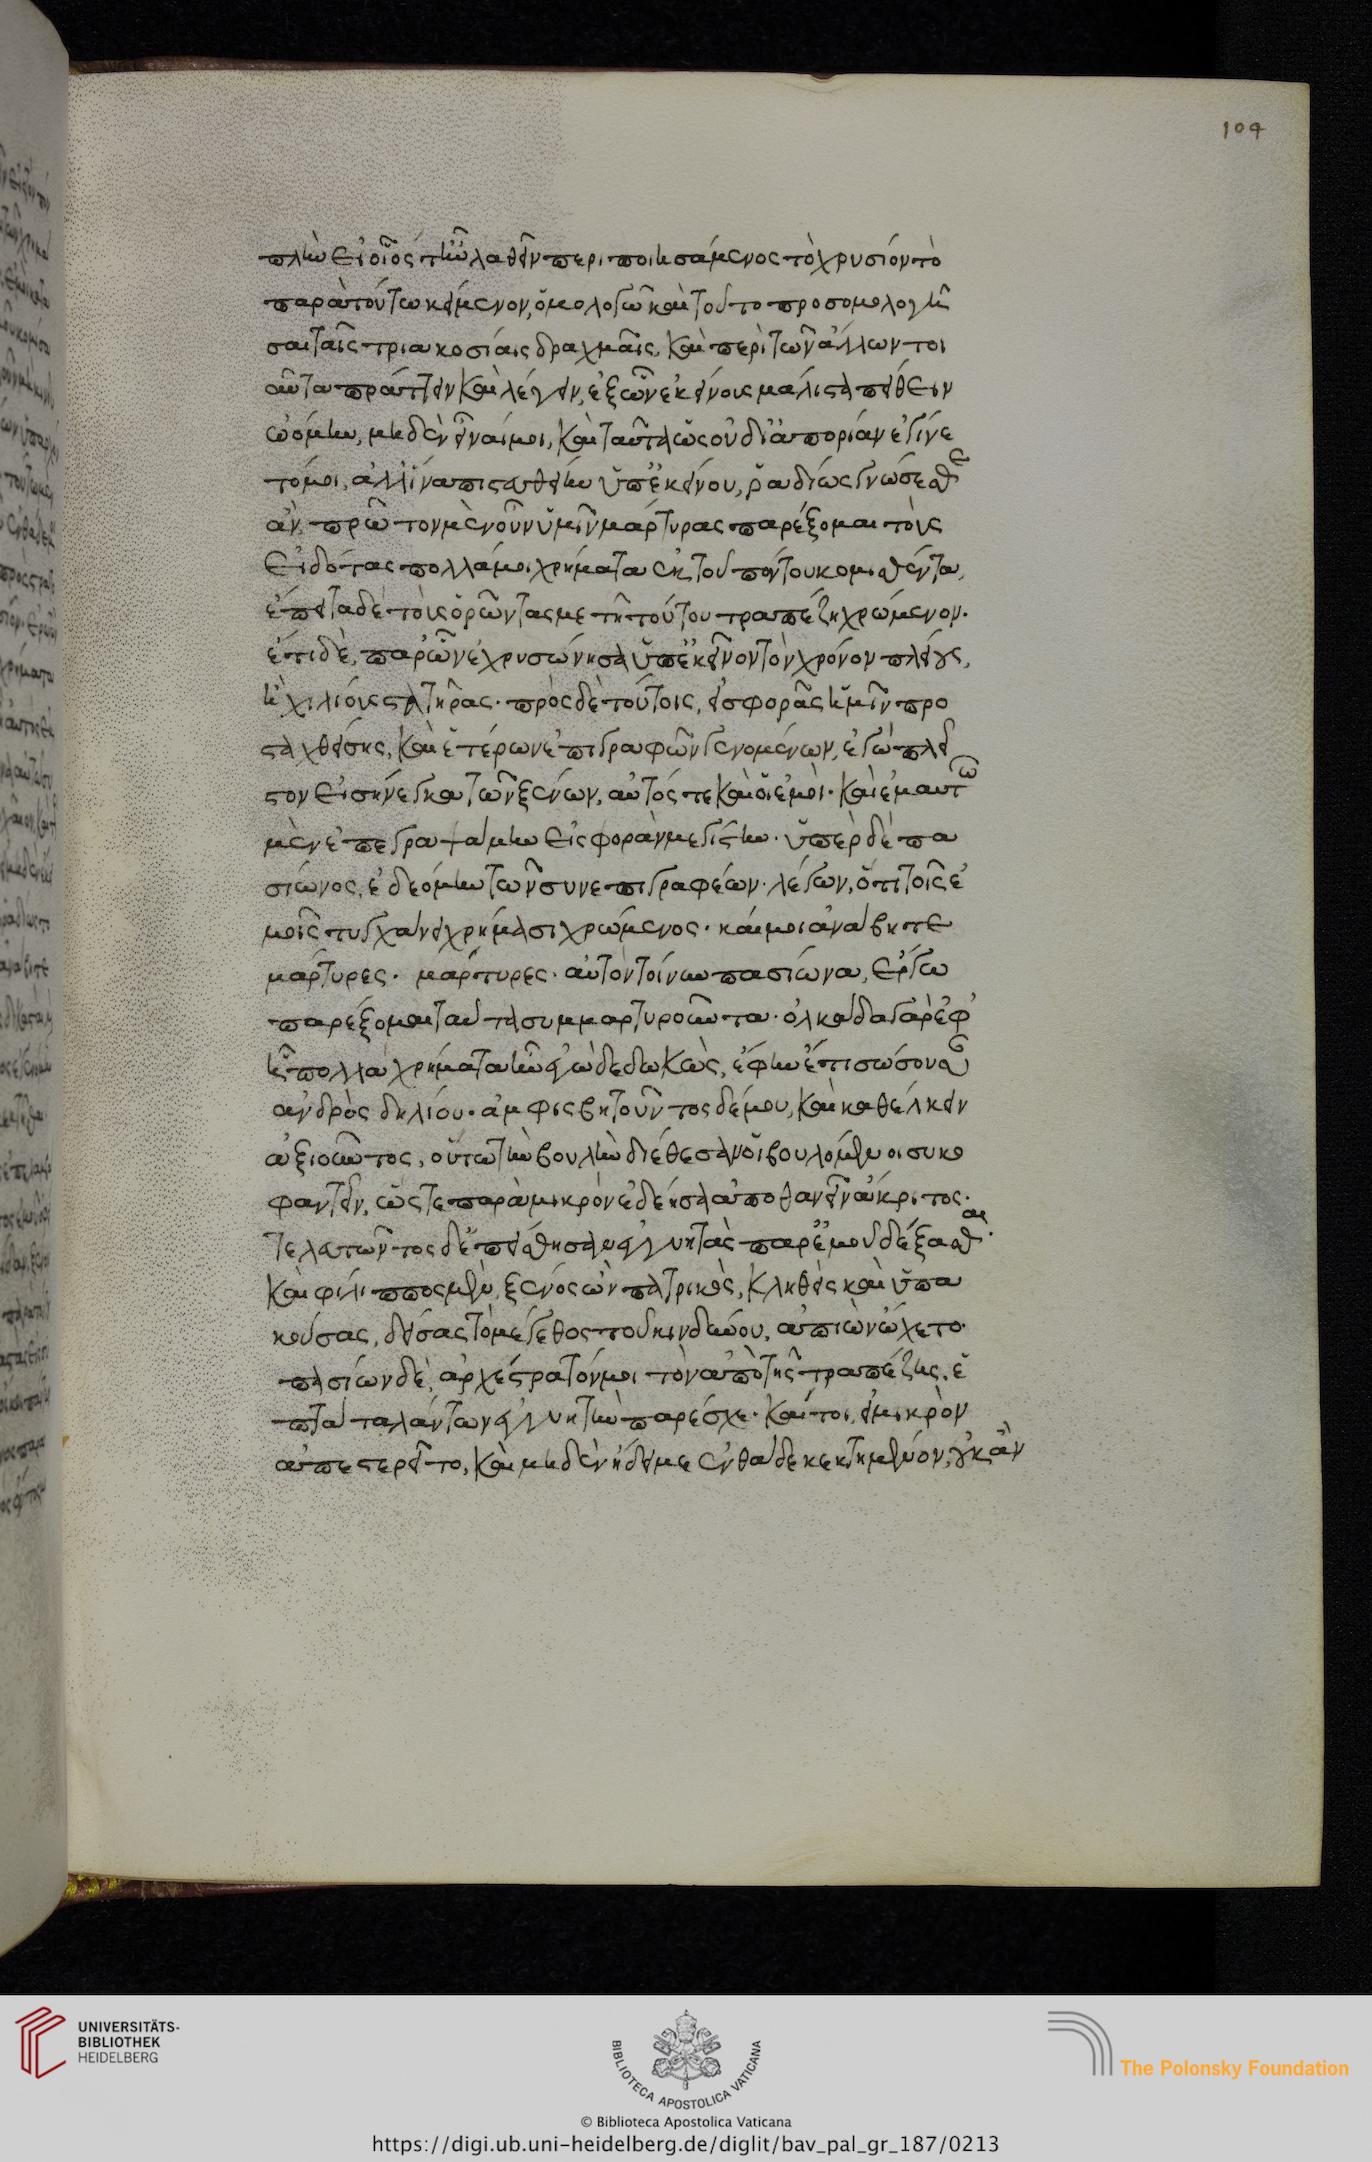 104
πλὴν εἰ οἷός τ' ἦν λαθεῖν περιποιησάμενος τὸ χρυσίον τὸ
παρὰ τούτω κείμενον, ὁμολογῶ καὶ τοῦτο προσομολογῆ
σαι ταῖς τριακοσίαις δραχμαῖς, καὶ περὶ τῶν ἄλλων τοι
αῦτα πράττειν καὶ λέγειν, ἐξ ὧν ἐκείνους μάλιστα πείθειν
ὠόμην, μηδὲν εἶναί μοι, καὶ ταῦτα ὡς οὐ δι' ἀπορίαν ἐγίνε
τό μοι, ἀλλ' ἵνα πιστευθείην ὑπ' ἐκείνου, ῥαδίως γνώσεσθε
αν, πρῶτον μὲν οὖν ὑμῖν μάρτυρας παρέξομαι τοὺς
εἰδότας πολλά μοι χρήματα ἐκ τοῦ πόντου κομισθέντα,
ἔπειτα δὲ τοὺς ὁρῶντας με τῆ τούτου τραπέζη χρώμενον.
ἔτι δὲ, παρ' ὧν ἐχρυσώνησα ὑπ' ἐκεῖνον τὸν χρόνον πλείους,
ἢ χιλίους στατῆρας. πρὸς δὲ τούτοις, εἰσφορᾶς ἡμῖν προ
σταχθείσης, καὶ ἑτέρων ἐπιγραφῶν γενομένων, ἐγὼ πλεῖ
στον εἰσήνεγκα τῶν ξένων, αὐτός τε καὶ οἱ ἐμοί. καὶ ἐμαυτῶ
μὲν ἐπεγραψάμην εἰσφορὰν μεγίστην. ὑπὲρ δὲ πα
σίωνος, ἐδεόμην τῶν συνεπιγραφέων. λέγων, ὅτι τοῖς ἐ
μοῖς τυγχάνει χρήμασι χρώμενος. καί μοι ἀνάβητε
μάρτυρες. μάρτυρες. αὐτὸν τοίνυν πασίωνα, ἔργω
παρέξομαι ταῦτα συμμαρτυροῦντα. ὁλκάδα γὰρ ἐφ'
ἧ πολλὰ χρήματα ἦν ἐγὼ δεδωκὼς, ἔφην ἔτι σω οὖσαν
ἀνδρὸς δηλίου. ἀμφισβητοῦντος δέ μου, καὶ καθέλκειν
ἀξιοῦντος, οὕτω τὴν βουλὴν διέθεσαν οἱ βουλόμενοι συκο
φαντεῖν, ὥστε παρὰ μικρὸν ἐδέησα ἀποθανεῖν ἄκριτος.
τελευτῶντος δ' ἐπείσθησαν ἐγγυητὰς παρ' ἐμοῦ δέξασθαι.
καὶ φίλιππος μὲν, ξένος ὢν πατρικὸς, κληθεὶς καὶ ὑπα
κούσας, δείσας τὸ μέγεθος τοῦ κινδύνου, ἀπιὼν ὤχετο.
πασίων δὲ, ἀρχέστρατόν μοι τὸν ἀπὸ τῆς τραπέζης, ἑ
πτὰ ταλάντων ἐγγυητὴν παρέσχε. καί τοι, εἰ μικρὸν
ἀπεστερεῖτο, καὶ μηδὲν ἤδει με ἐνθάδε κεκτημένον, οὐκ ἂν
UNIVERSITÄTS-
BIBLIOTHEK
HEIDELBERG
BIBLIOTECA APOSTOLICA VATICANA
The Polonsky Foundation
© Biblioteca Apostolica Vaticana
https://digi.ub.uni-heidelberg.de/diglit/bav_pal_gr_187/0213